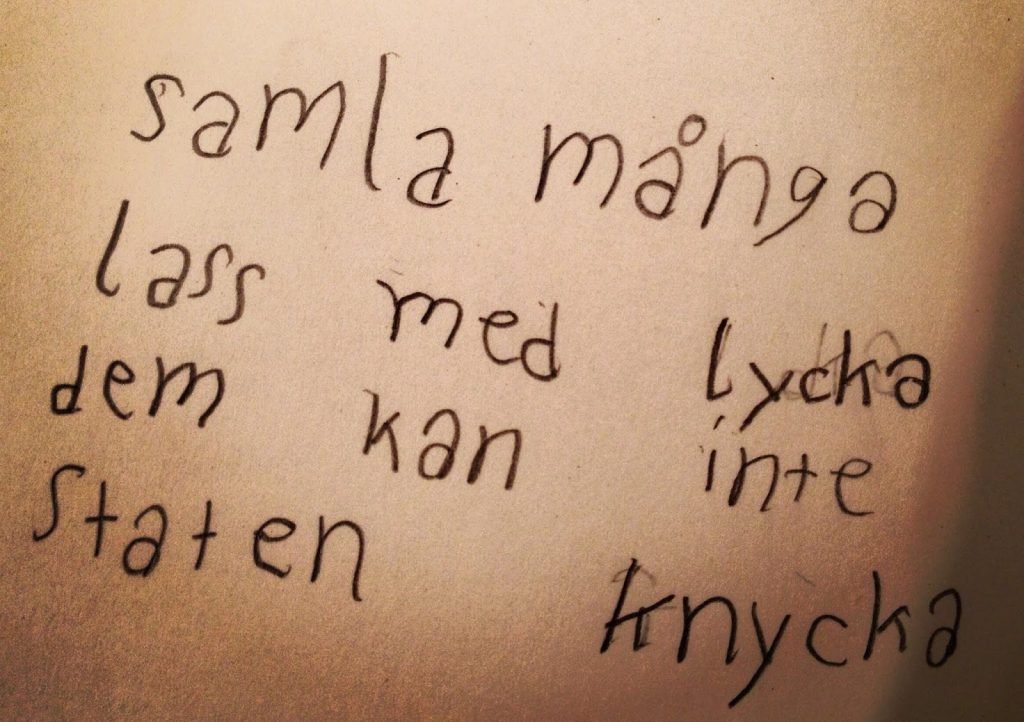 samla många
lass med lycka
dem kan inte
staten knycka